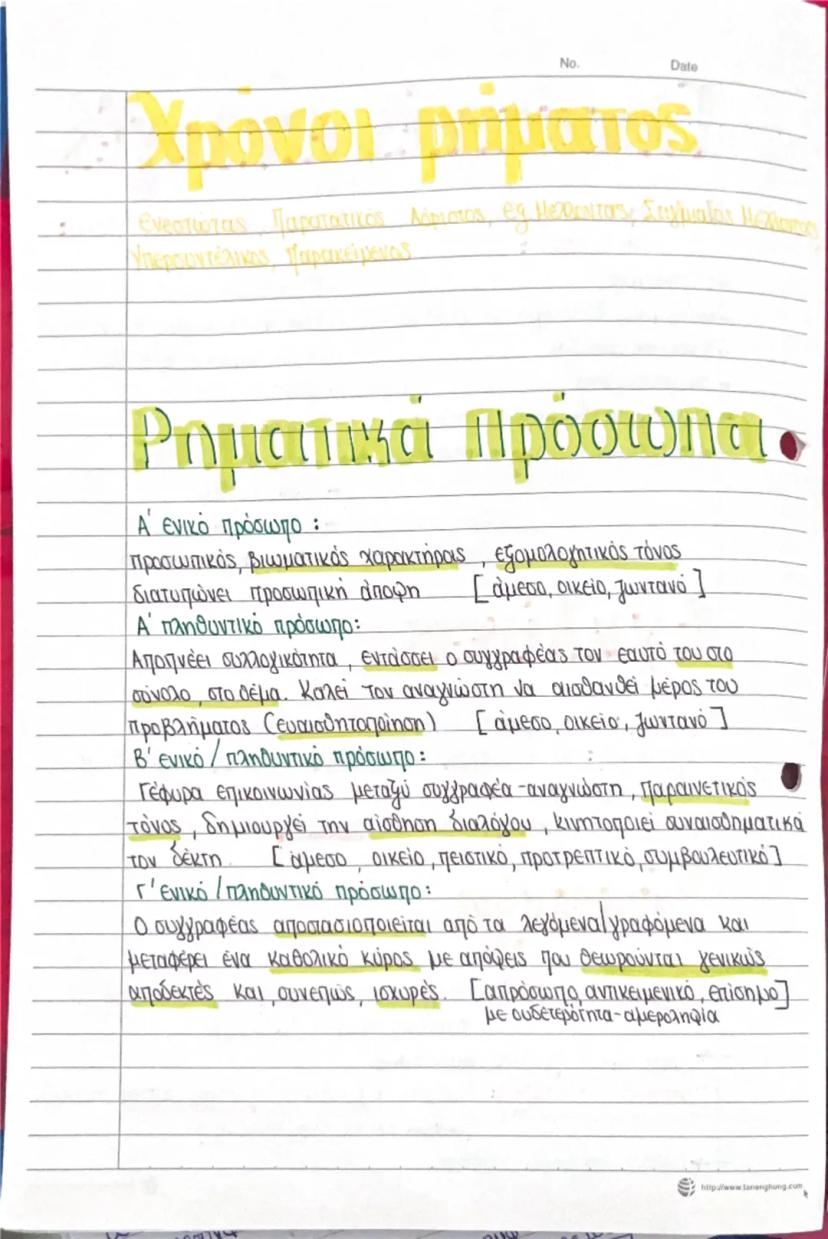 No. Date
Χρόνοι ρήματος
Ενεστώτας, Παρατατικός, Αόριστος, εξ Μέλλοντας, Στιγμιαίος Μέλλοντας,
Υπερσυντέλικος, Παρακείμενος
Ρηματικά πρόσωπα
Α' ενικό πρόσωπο :
προσωπικός, βιωματικός χαρακτήρας , εξομολογητικός τόνος
διατυπώνει προσωπική άποψη [άμεσο, οικείο, ζωντανό]
Α' πληθυντικό πρόσωπο:
Αποπνέει συλλογικότητα , εντάσσει ο συγγραφέας τον εαυτό του στο
σύνολο, στο θέμα. Καλεί τον αναγνώστη να αισθανθεί μέρος του
προβλήματος (ευαισθητοποίηση) [άμεσο, οικείο, ζωντανό]
Β' ενικό / πληθυντικό πρόσωπο:
Γέφυρα επικοινωνίας μεταξύ συγγραφέα-αναγνώστη , παραινετικός
τόνος , δημιουργεί την αίσθηση διαλόγου , κινητοποιεί συναισθηματικά
τον δέκτη. [άμεσο, οικείο, πειστικό, προτρεπτικό, συμβουλευτικό]
Γ' ενικό / πληθυντικό πρόσωπο:
Ο συγγραφέας αποστασιοποιείται από τα λεγόμενα/γραφόμενα και
μεταφέρει ένα καθολικό κύρος με απόψεις που θεωρούνται γενικώς
αποδεκτές και, συνεπώς, ισχυρές. [απρόσωπο, αντικειμενικό, επίσημο]
με ουδετερότητα-αμεροληψία
http://www.tananghung.com